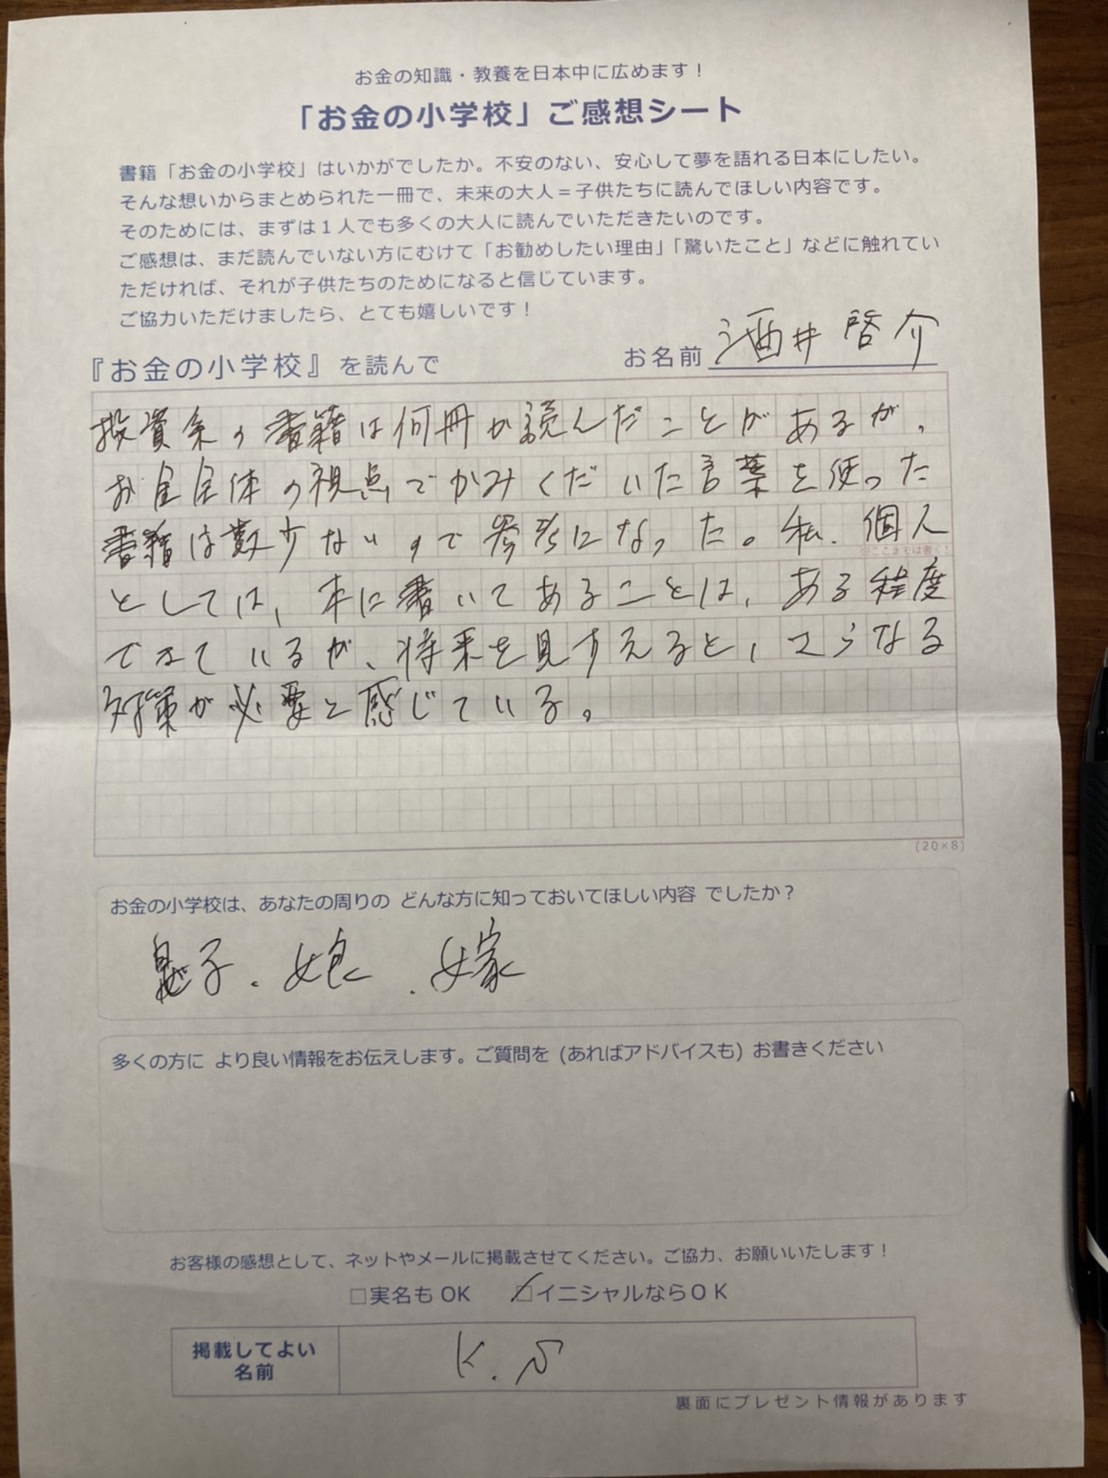 お金の知識・教養を日本中に広めます！
「お金の小学校」ご感想シート
書籍「お金の小学校」はいかがでしたか。不安のない、安心して夢を語れる日本にしたい。
そんな想いからまとめられた一冊で、未来の大人＝子供たちに読んでほしい内容です。
そのためには、まずは１人でも多くの大人に読んでいただきたいのです。
ご感想は、まだ読んでいない方にむけて「お勧めしたい理由」「驚いたこと」などに触れてい
ただければ、それが子供たちのためになると信じています。
ご協力いただけましたら、とても嬉しいです！
お名前 酒井啓介
『お金の小学校』を読んで
投資系の書籍は何冊か読んだことがあるが、
お金全体の視点でかみくだいた言葉を使った
書籍は数少ないので参考になった。私、個人
※ここまでは書く！
としては、本に書いてあることは、ある程度
できているが、将来を見すえると、さらなる
対策が必要と感じている。
(20×8)
お金の小学校は、あなたの周りの どんな方に知っておいてほしい内容 でしたか？
息子、娘、嫁
多くの方に より良い情報をお伝えします。ご質問を (あればアドバイスも) お書きください
お客様の感想として、ネットやメールに掲載させてください。ご協力、お願いいたします！
□実名も OK ☑イニシャルならＯＫ
掲載してよい
名前
K.S
裏面にプレゼント情報があります